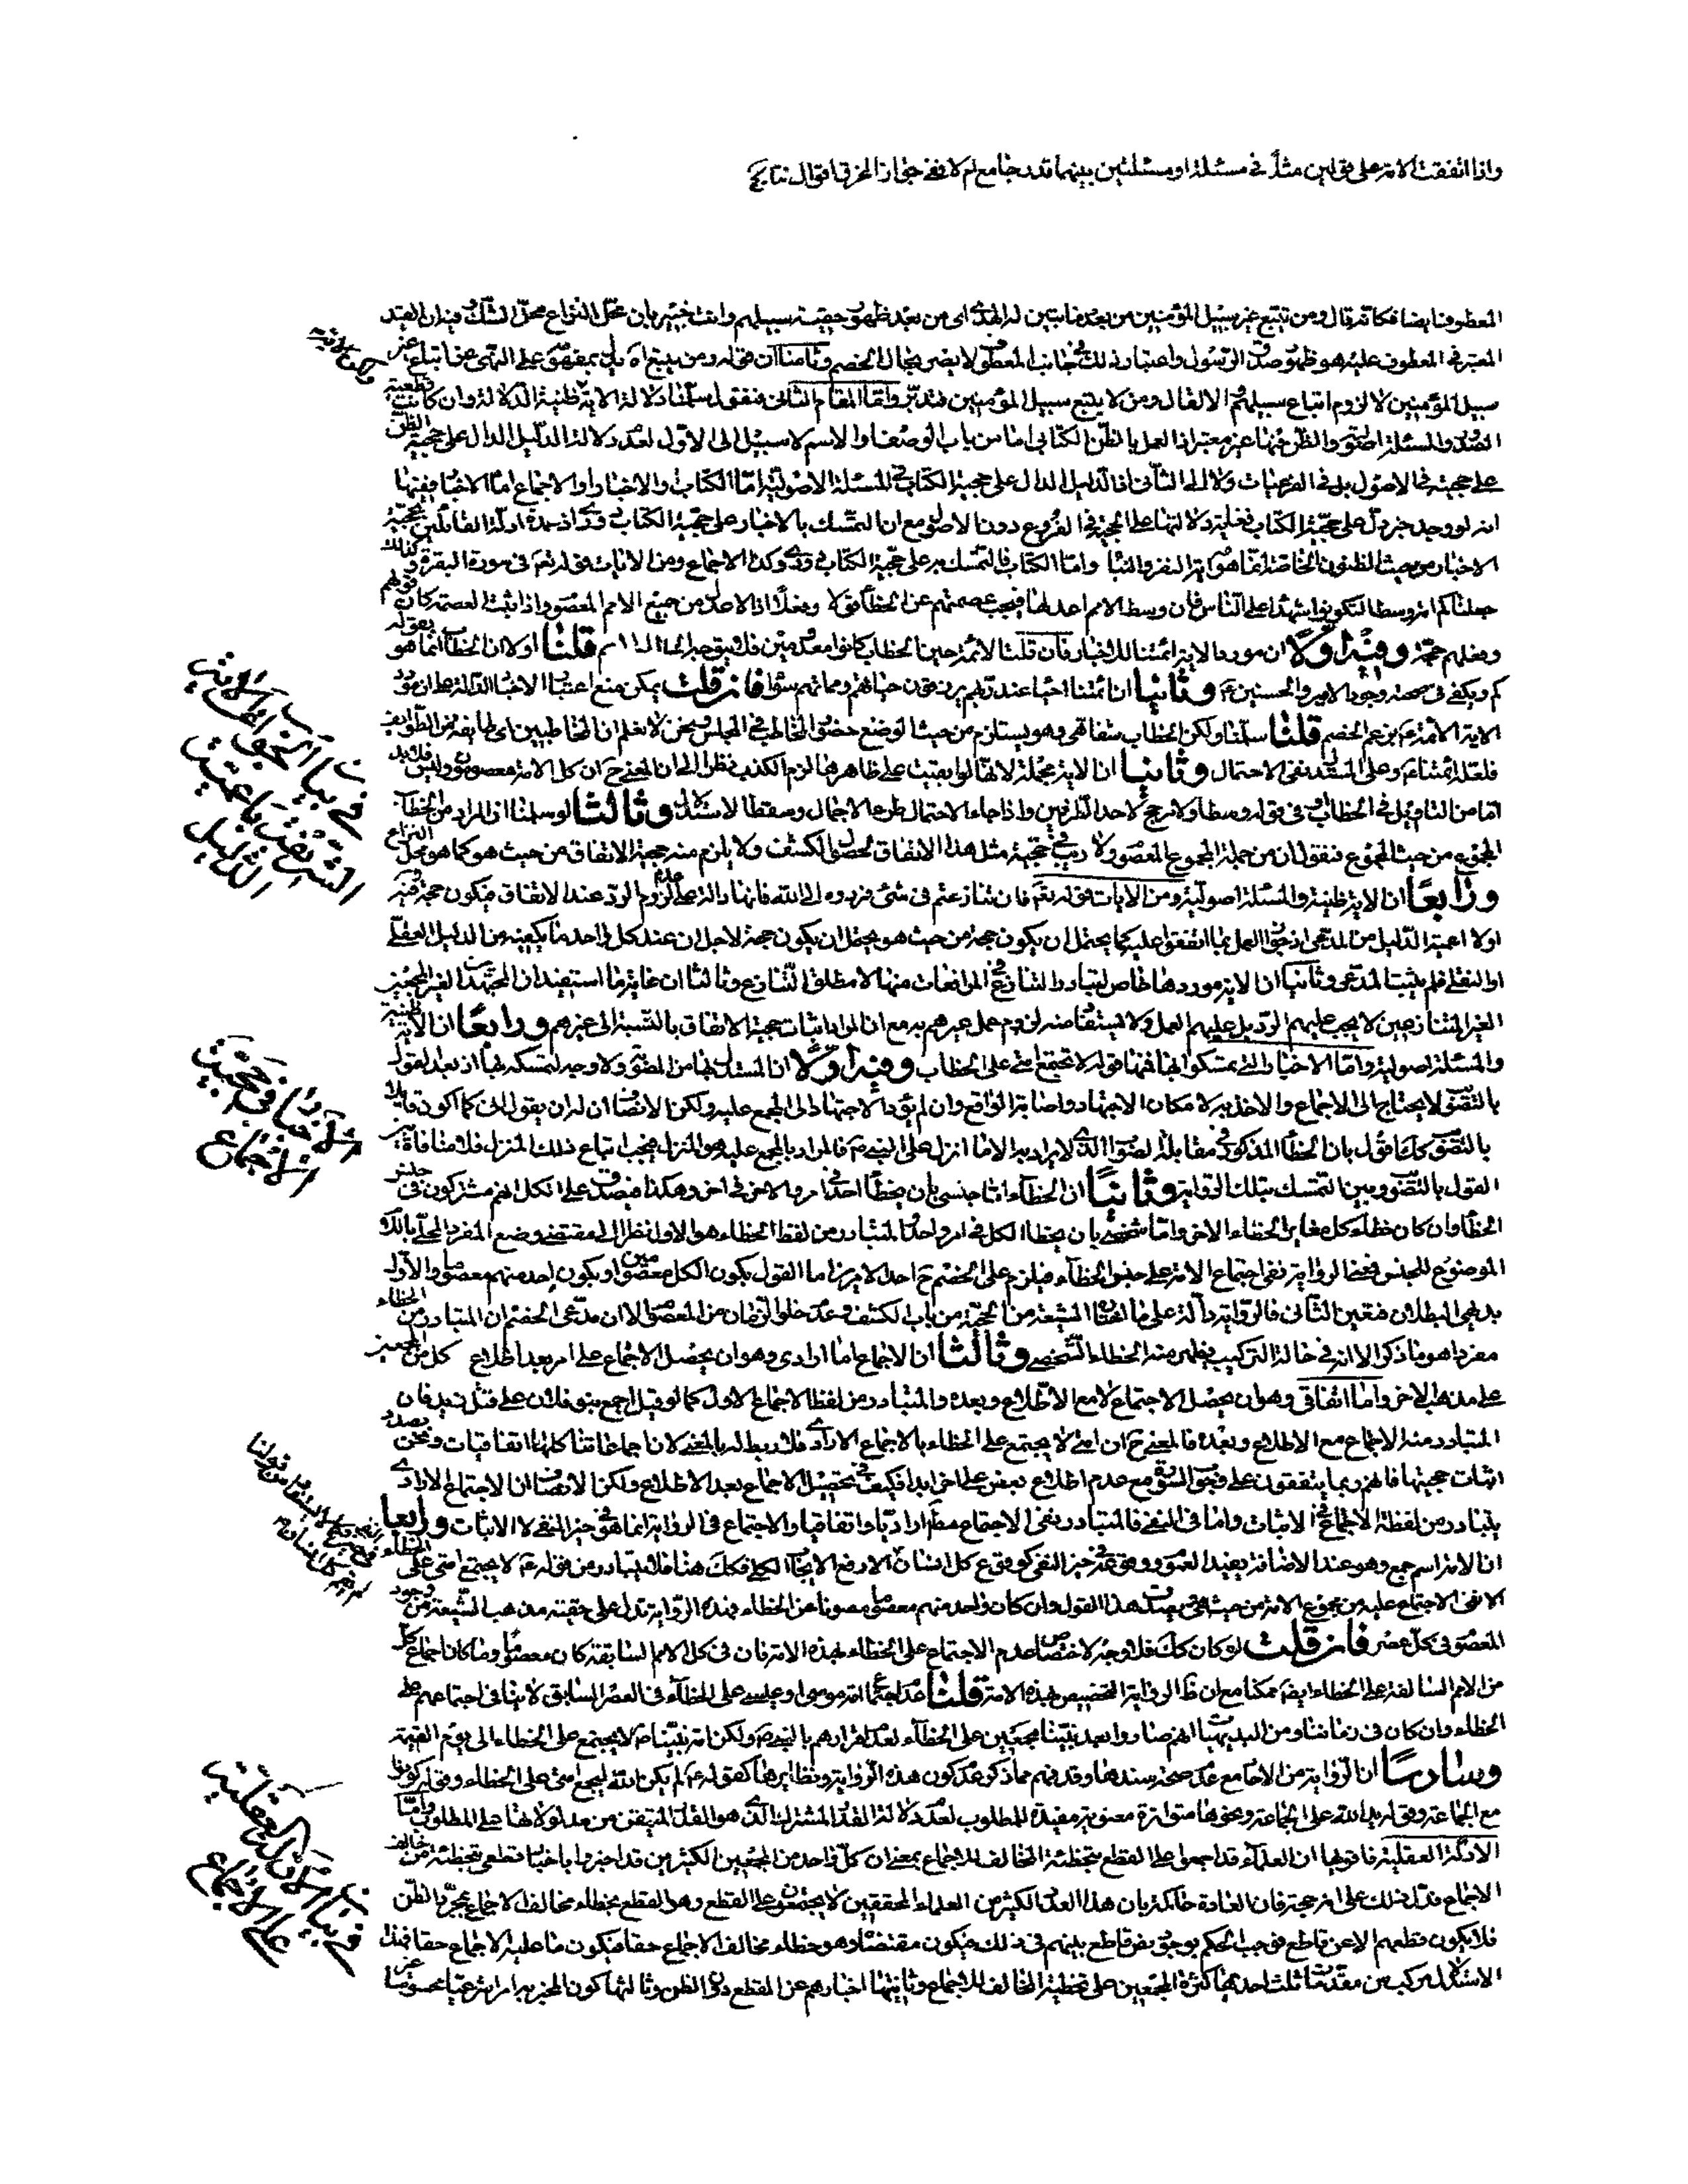 واذا اتفقت الامة على قولين مثلاً في مسئلة او مسئلتين بينهما قدر جامع ام لا ففي جواز الخرق اقوال
المعطوف ايضا فكانه قال ومن يتبع غير سبيل المؤمنين من بعد ما تبين له الهدى اى من بعد ظهور حقية سبيلهم وانت خبير بان محل النزاع محل الشك فيه ان القيد
المعتبر في المعطوف عليه هو ظهور صدق الرسول واعتبار ذلك في جانب المعطوف لا يضر بحال الخصم وثامنا ان قوله ومن يتبع اه يدل بمفهومه على النهى عن اتباع غير
سبيل المؤمنين لا لزوم اتباع سبيلهم الا لقال ومن لا يتبع سبيل المؤمنين فتدبر واما المقام الثانى فنقول سلمنا دلالة الاية ظنية الدلالة وان كانت قطعية
الصدور والمسئلة اصولية والظن فيها غير معتبر اذ العمل بالظن الكتابى اما من باب الوصف او الاسم لا سبيل الى الاول لعدم دلالة الدليل الدال على حجية الظن
على حجيته في الاصول بل في الفرعيات ولا الى الثانى اذ الدليل الدال على حجية الكتاب في المسئلة الاصولية اما الكتاب او الاخبار او الاجماع اما الاخبار ففيها
انه لو وجد خبر دل على حجية الكتاب فغايته دلالتها على الحجية في الفروع دون الاصول مع ان التمسك بالاخبار على حجية الكتاب دورى اذ عمدة ادلة القائلين بحجية
الاخبار من حيث الظنون الخاصة انما هو اية النفر والنبأ واما الكتاب فالتمسك به على حجية الكتاب دورى وكذا الاجماع ومن الايات قوله تعم في سورة البقرة وكذلك
جعلناكم امة وسطا لتكونوا شهداء على الناس فان وسط الامم اعدلها فيجب عصمتهم عن الخطأ قولا وفعلا اذ الاعدل من جميع الامم المعصوم واذا ثبت العصمة كان قولهم
وفعلهم حجة وفيه اولا ان مورد الاية ائمتنا للاخبار فان قلت الائمة حين الخطاب كانوا معدومين فلا يتوجه قلنا اولا ان الخطاب انما هو بقوله
كم ويكفى في صحته وجود الامير والحسنين ع وثانيا ان ائمتنا احياء عند ربهم يرزقون حياتهم ومماتهم سواء فان قلت يمكن منع اعتبار الاخبار الدالة على ان مورد
الاية الائمة ع بزعم الخصم قلنا سلمنا ولكن الخطاب شفاهى وهو يستلزم من حيث الوضع حضور المخاطب في المجلس ونحن لا نعلم ان المخاطبين اى طائفة من الطوايف
فلعله ائمتنا ع وعلى المستدل نفى الاحتمال وثانيا ان الاية مجملة لانها لو ابقيت على ظاهرها لزم الكذب نظرا الى ان المعنى ح ان كل الامة معصومون وليس فلابد
اما من التاويل في الخطاب او في قوله وسطا ولا مرجح لاحد الطرفين واذا جاء الاحتمال طرء الاجمال وسقط الاستدلال وثالثا لو سلمنا ان المراد من الخطاب
المجموع من حيث المجموع فنقول ان من جملة المجموع المعصوم ولا ريب في حجية مثل هذا الاتفاق لحصول الكشف ولا يلزم منه حجية الاتفاق من حيث هو كما هو محل النزاع
ورابعا ان الاية ظنية والمسئلة اصولية ومن الايات قوله تعم فان تنازعتم في شئ فردوه الى الله فانها دالة على عدم لزوم الرد عند الاتفاق فيكون حجة وفيه
اولا اعمية الدليل من المدعى اذ جواز العمل بما اتفقوا عليه كما يحتمل ان يكون حجة من حيث هو يحتمل ان يكون حجة لاجل ان عند كل واحد ما يكفيه من الدليل العقلى
او النقلى فلم يثبت المدعى وثانيا ان الاية موردها خاص لتبادر التنازع في المرافعات منها لا مطلق التنازع وثالثا ان غاية ما استفيد ان المجتهدين الغير المجمعين
الغير المتنازعين لا يجب عليهم الرد بل عليهم العمل ولا يستفاد منه لزوم عمل غيرهم به مع ان المراد اثبات حجية الاتفاق بالنسبة الى غيرهم ورابعا ان الاية ظنية
والمسئلة اصولية واما الاخبار التى تمسكوا بها فمنها قوله لا تجتمع امتى على الخطاء وفيه اولا ان المستدل بها من المصوبة ولا وجه لتمسكه بها اذ بعد القول
بالتصويب لا يحتاج الى الاجماع والاخذ به لامكان الاجتهاد واصابة الواقع وان لم يؤد الاجتهاد الى المجمع عليه ولكن الانصاف ان له ان يقول انى كما اكون قايلا
بالتصويب كك اقول بان الخطأ المذكور في مقابلة الصواب الذى لا يراد به الا ما انزل على النبى ص فالمراد بالمجمع عليه هو المنزل فيجب اتباع ذلك المنزل فلا منافاة بين
القول بالتصويب وبين التمسك بتلك الرواية وثانيا ان الخطاء اما جنسى بان يخطأ احد في امر والاخر في اخر وهكذا فيصدق على الكل انهم مشتركون في جنس
الخطأ وان كان خطاء كل مغاير الخطاء الاخر واما شخصى بان يخطأ الكل في امر واحد والمتبادر من لفظ الخطاء هو الاول نظرا الى مقتضى وضع المفرد المحلى باللام
الموضوع للجنس فمعنى الرواية نفى اجتماع الامة على جنس الخطاء فيلزم على الخصم ح احد الامرين اما القول بكون الكل معصومين او بكون واحد منهم معصوما والاول
بديهى البطلان فتعين الثانى فالرواية دالة على ما اختاره الشيعة من الحجية من باب الكشف وعدم خلو الزمان من المعصوم الا ان مدعى الخصم ان المتبادر من الخطاء
مفردا هو ما ذكر الا انه في حالة التركيب يظهر منه الخطاء الشخصى وثالثا ان الاجماع اما ارادى وهو ان يحصل الاجماع على امر بعد اطلاع كل من المجمعين
على مذهب الاخر واما اتفاقى وهو ان يحصل الاجتماع لا مع الاطلاع وبعده والمتبادر من لفظ الاجماع الاول كما لو قيل اجمع بنو فلان على قتل زيد فان
المتبادر منه الاجماع مع الاطلاع وبعده فالمعنى ح ان امتى لا يجتمع على الخطاء بالاجماع الارادى فلا ربط له بالمعنى لان اجماعاتنا كلها اتفاقيات ونحن بصدد
اثبات حجيتها فانهم ربما يتفقون على فتوى مع عدم اطلاع بعض على اخر ابدا فكيف في تحصيل الاجماع بعد الاطلاع ولكن الانصاف ان الاجتماع الارادى
يتبادر من لفظة الاجماع في الاثبات واما في النفى فالمتبادر نفى الاجتماع مطلقا اراديا واتفاقيا والاجتماع في الرواية انما هو في حيز النفى لا الاثبات ورابعا
ان الامة اسم جمع وهو عند الاضافة يفيد العموم ووقوعه في حيز النفى كوقوع كل انسان لا رفع الايجاب الكلى فكك هنا فلا يتبادر من قوله ع لا يجتمع امتى على الخطاء
الا نفى الاجتماع عليه من مجموع الامة من حيث هذا القول وان كان واحد منهم معصوما مصونا من الخطاء فهذه الرواية تدل على حقية مذهب الشيعة من وجود
المعصوم في كل عصر فان قلت لو كان كك فلا وجه لاختصاص عدم الاجتماع على الخطاء بهذه الامة فان في كل الامم السابقة كان معصوما وما كان اجتماع كل
من الامم السالفة على الخطاء ايضا ممكنا مع ان ظ الرواية التخصيص بهذه الامة قلنا عدم اجتماع امة موسى او عيسى على الخطاء في العصر السابق لا ينافى اجتماعهم على
الخطاء وان كان في زماننا ومن البديهيات انهم صاروا بعد نبينا مجمعين على الخطاء لعدم اقرارهم بالنبى ص ولكن امة نبينا ص لا يجتمع على الخطاء الى يوم القيمة
وسادسا ان الرواية من الاحاد مع عدم صحة سندها وقد فهم مما ذكر عدم كون هذه الرواية ونظايرها كقوله ع لم يكن الله ليجمع امتى على الخطاء وقوله كونوا
مع الجماعة وقوله يد الله على الجماعة ونحوها متواترة معنوية مفيدة للمطلوب لعدم دلالة القدر المشترك الذى هو القدر المتيقن من مدلولاتها على المطلوب واما
الادلة العقلية فاقويها ان العلماء قد اجمعوا على القطع بتخطئة المخالف للاجماع بمعنى ان كل واحد من المجمعين الكثيرين قد اخبروا باخبار قطعى بتخطئة من خالف
الاجماع فدل ذلك على انه حجة فان العادة حاكمة بان هذا العدد الكثير من العلماء المحققين لا يجتمعون على القطع وهو القطع بخطاء مخالف الاجماع بمجرد الظن
فلا يكون قطعهم الا عن قاطع فيجب الحكم بوجود نص قاطع بلغهم في ذلك فيكون مقتضاه وهو خطاء مخالف الاجماع حقا فيكون ما عليه الاجماع حقا فهذا
الاستدلال مركب من مقدمات ثلث احديها كثرة المجمعين على تخطئة المخالف للاجماع وثانيتها اخبارهم عن القطع دون الظن وثالثها كون المخبر به امرا شرعيا محسوسا
في بيان الاخبار في حجية الاجماع
في بيان الادلة العقلية على الاجماع